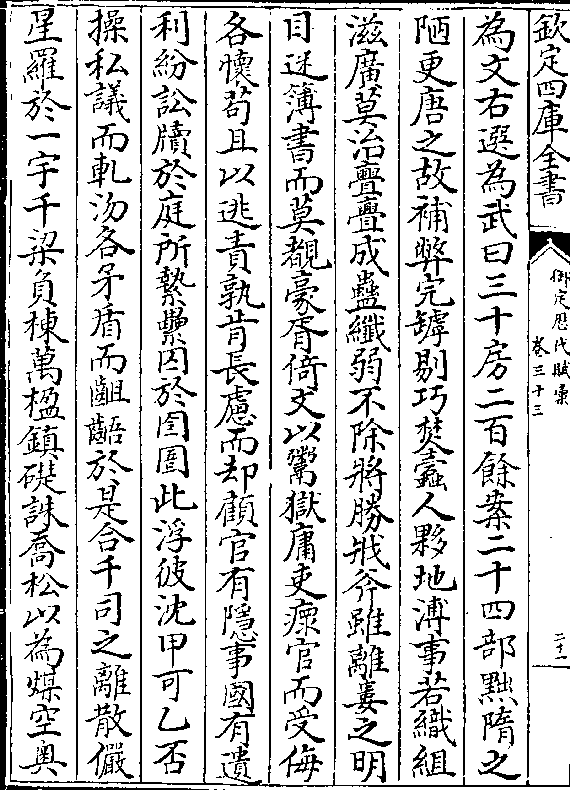 欽定四庫全書
御定歴代賦彙
卷三十三
二十一
為文右選為武曰三十房二百餘案二十四部黜隋之
陋更唐之故補弊完罅剔巧焚蠹人夥地溥事若織組
滋廣莫治亹亹成蠱纎弱不除將勝戕斧雖離婁之明
目迷簿書而莫覩豪胥倚文以鬻獄庸吏瘝官而受侮
各懷苟且以逃責孰肯長慮而却顧官有隱事國有遺
利紛訟牘於庭所縶纍囚於囹圄此浮彼沈甲可乙否
操私議而軋沕各矛盾而齟齬於是合千司之離散儼
星羅於一宇千梁負棟萬楹鎮礎誅喬松以為煤空奥